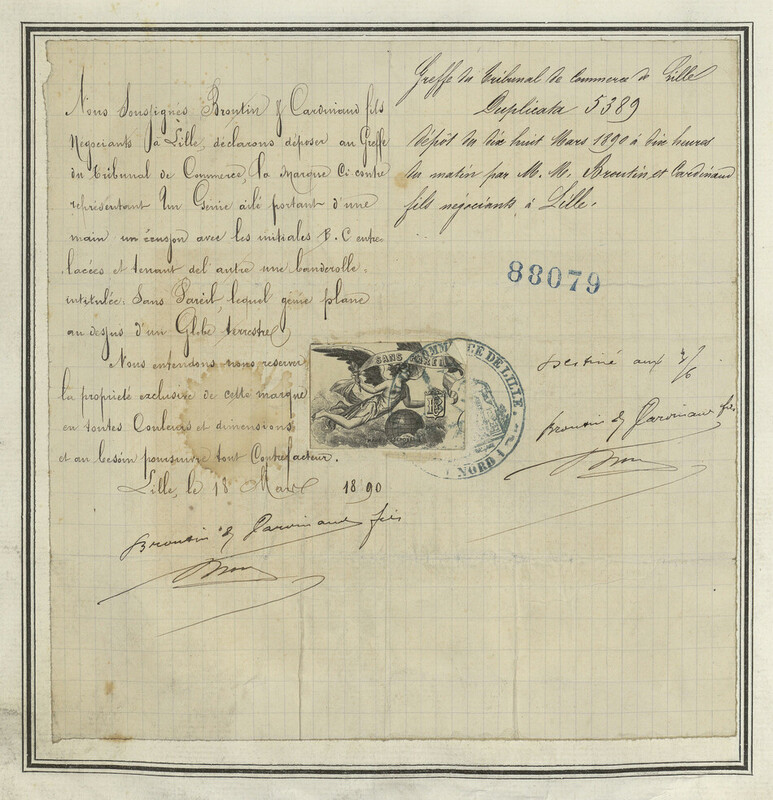 Nous Soussignés Broutin & Cardinaud fils
Négociants à Lille, déclarons déposer au Greffe
du Tribunal de Commerce, la Marque Ci contre
représentant Un Génie ailé portant d'une
main un écusson avec les initiales B. C entre-
lacées et tenant del autre une banderolle
intitulée: Sans Pareil, lequel génie plane
au dessus d'un Globe terrestre
Nous entendons nous reserver
la propriété exclusive de cette marque
en toutes Couleurs et dimensions
et au besoin poursuivre tout Contrefacteur.
Lille, le 18 Mars 1890
Broutin & Cardinaud fils
Greffe du Tribunal de Commerce de Lille
Duplicata 5389
Dépôt du dix huit Mars 1890 à dix heures
du matin par M. M. Broutin et Cardinaud
fils négociants à Lille.
88079
SANS PAREIL
COMMERCE DE LILLE.
NORD
Destiné aux
Broutin & Cardinaud fils